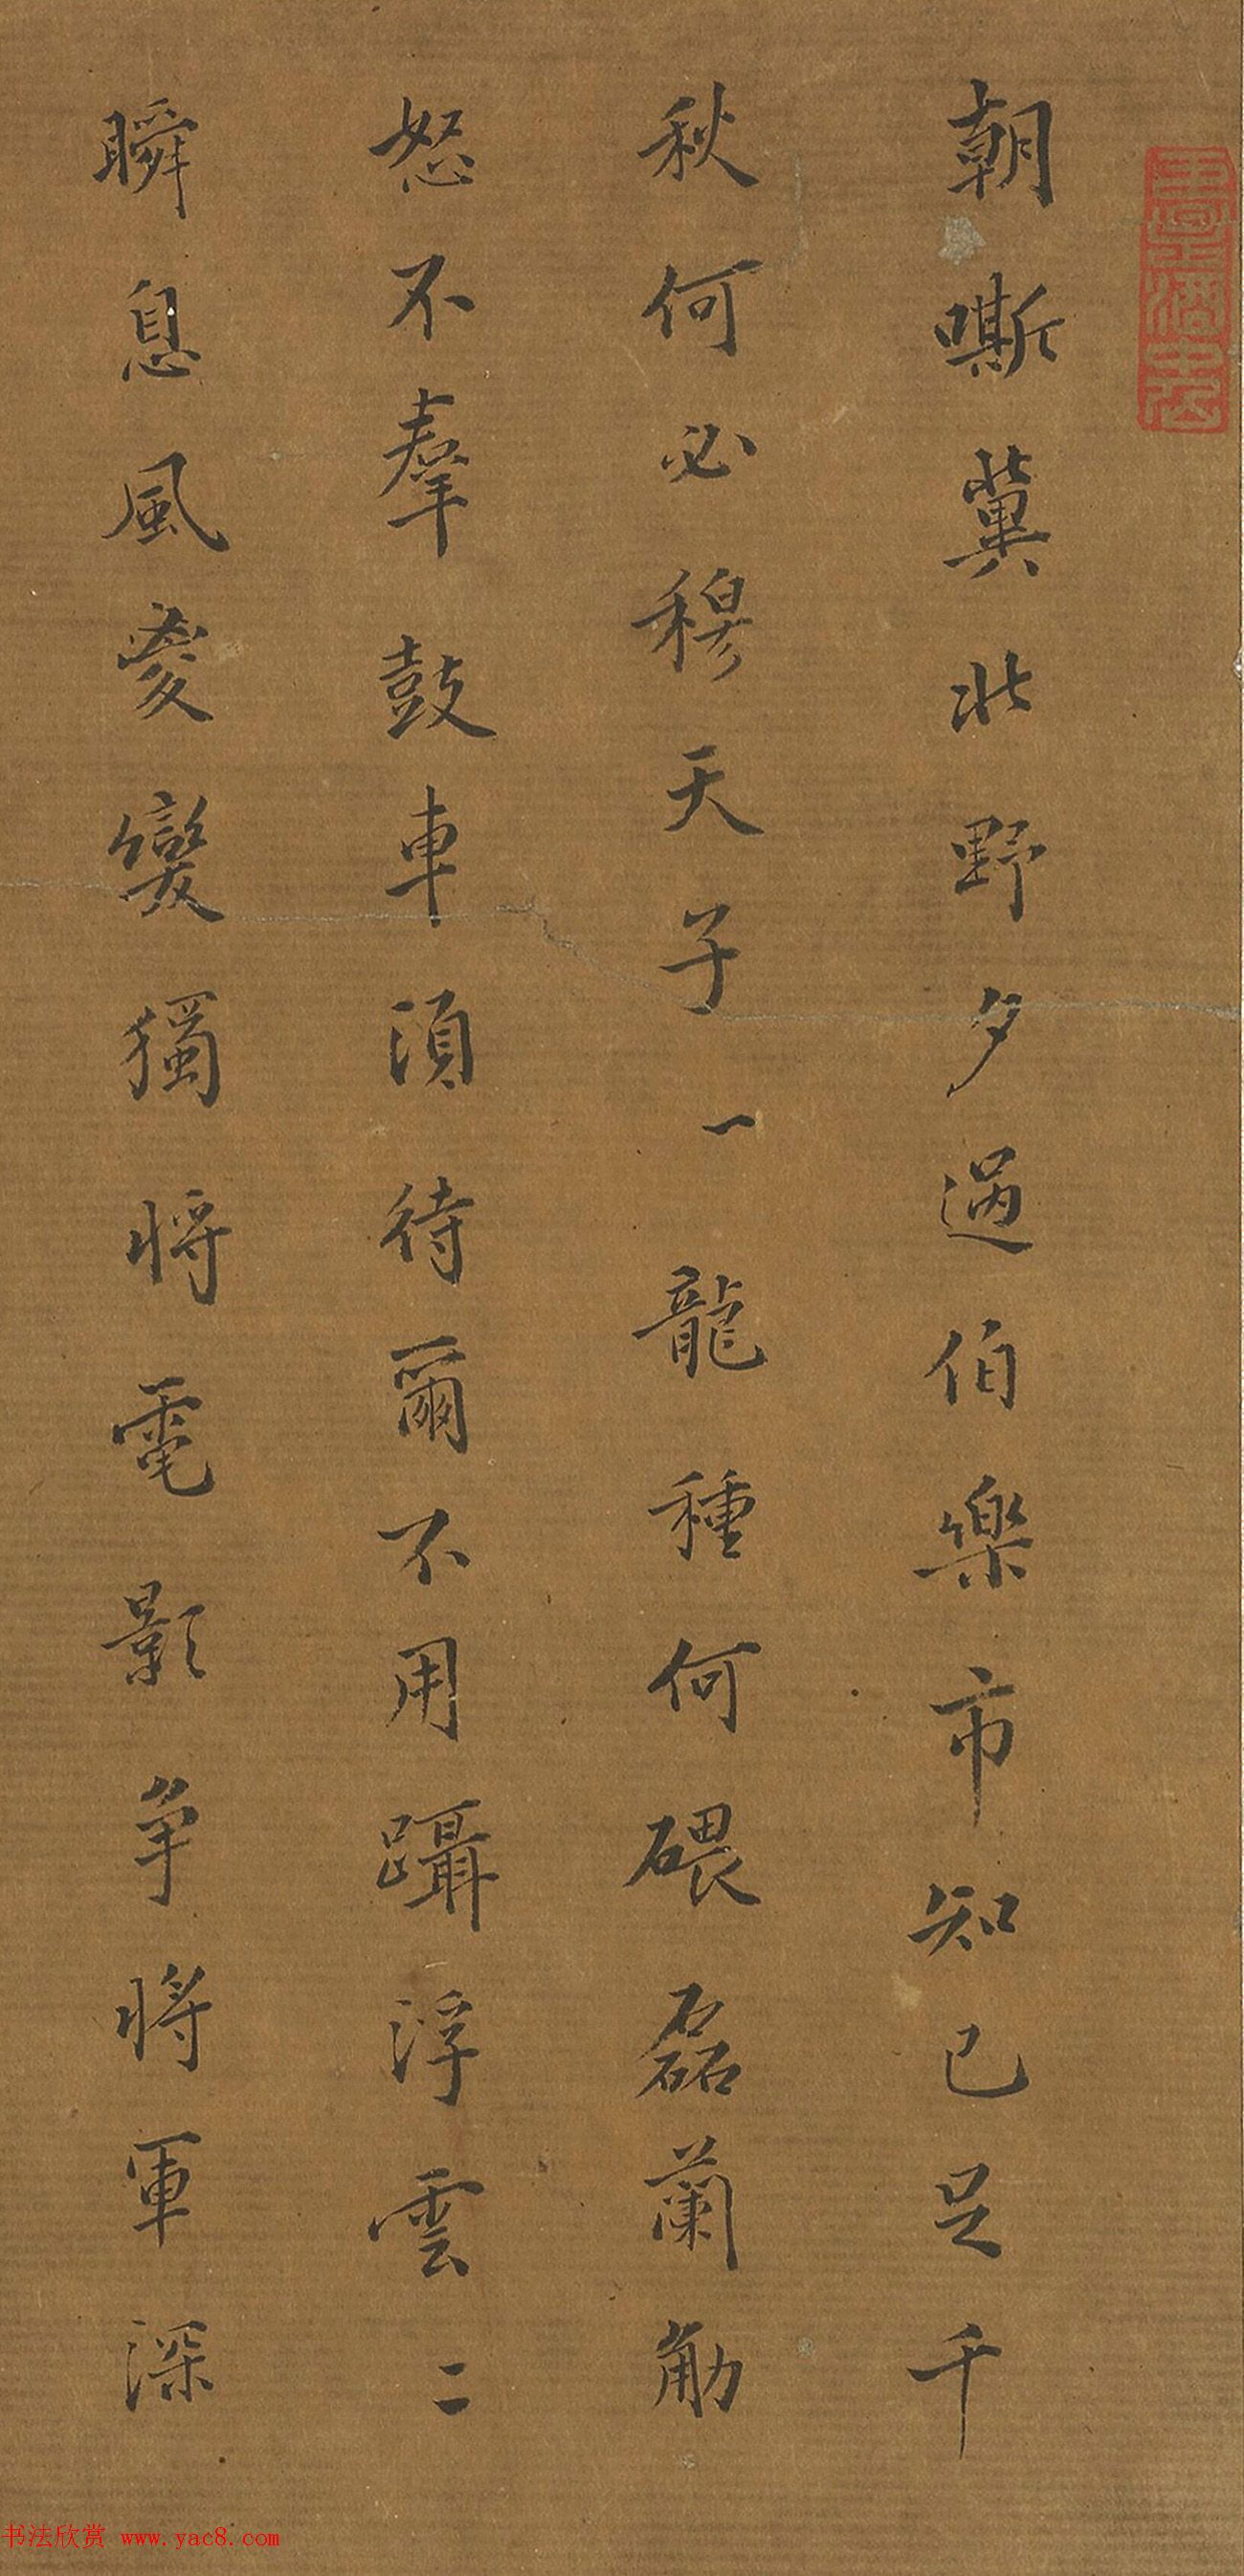 朝嘶冀北野夕過伯樂市知己足千
秋何必穆天子一龍種何碨磊蘭觔
怒不羣鼓車須待爾不用躡浮雲二
瞬息風雲變獨將電影争將軍深
书法欣赏 www.yac8.com